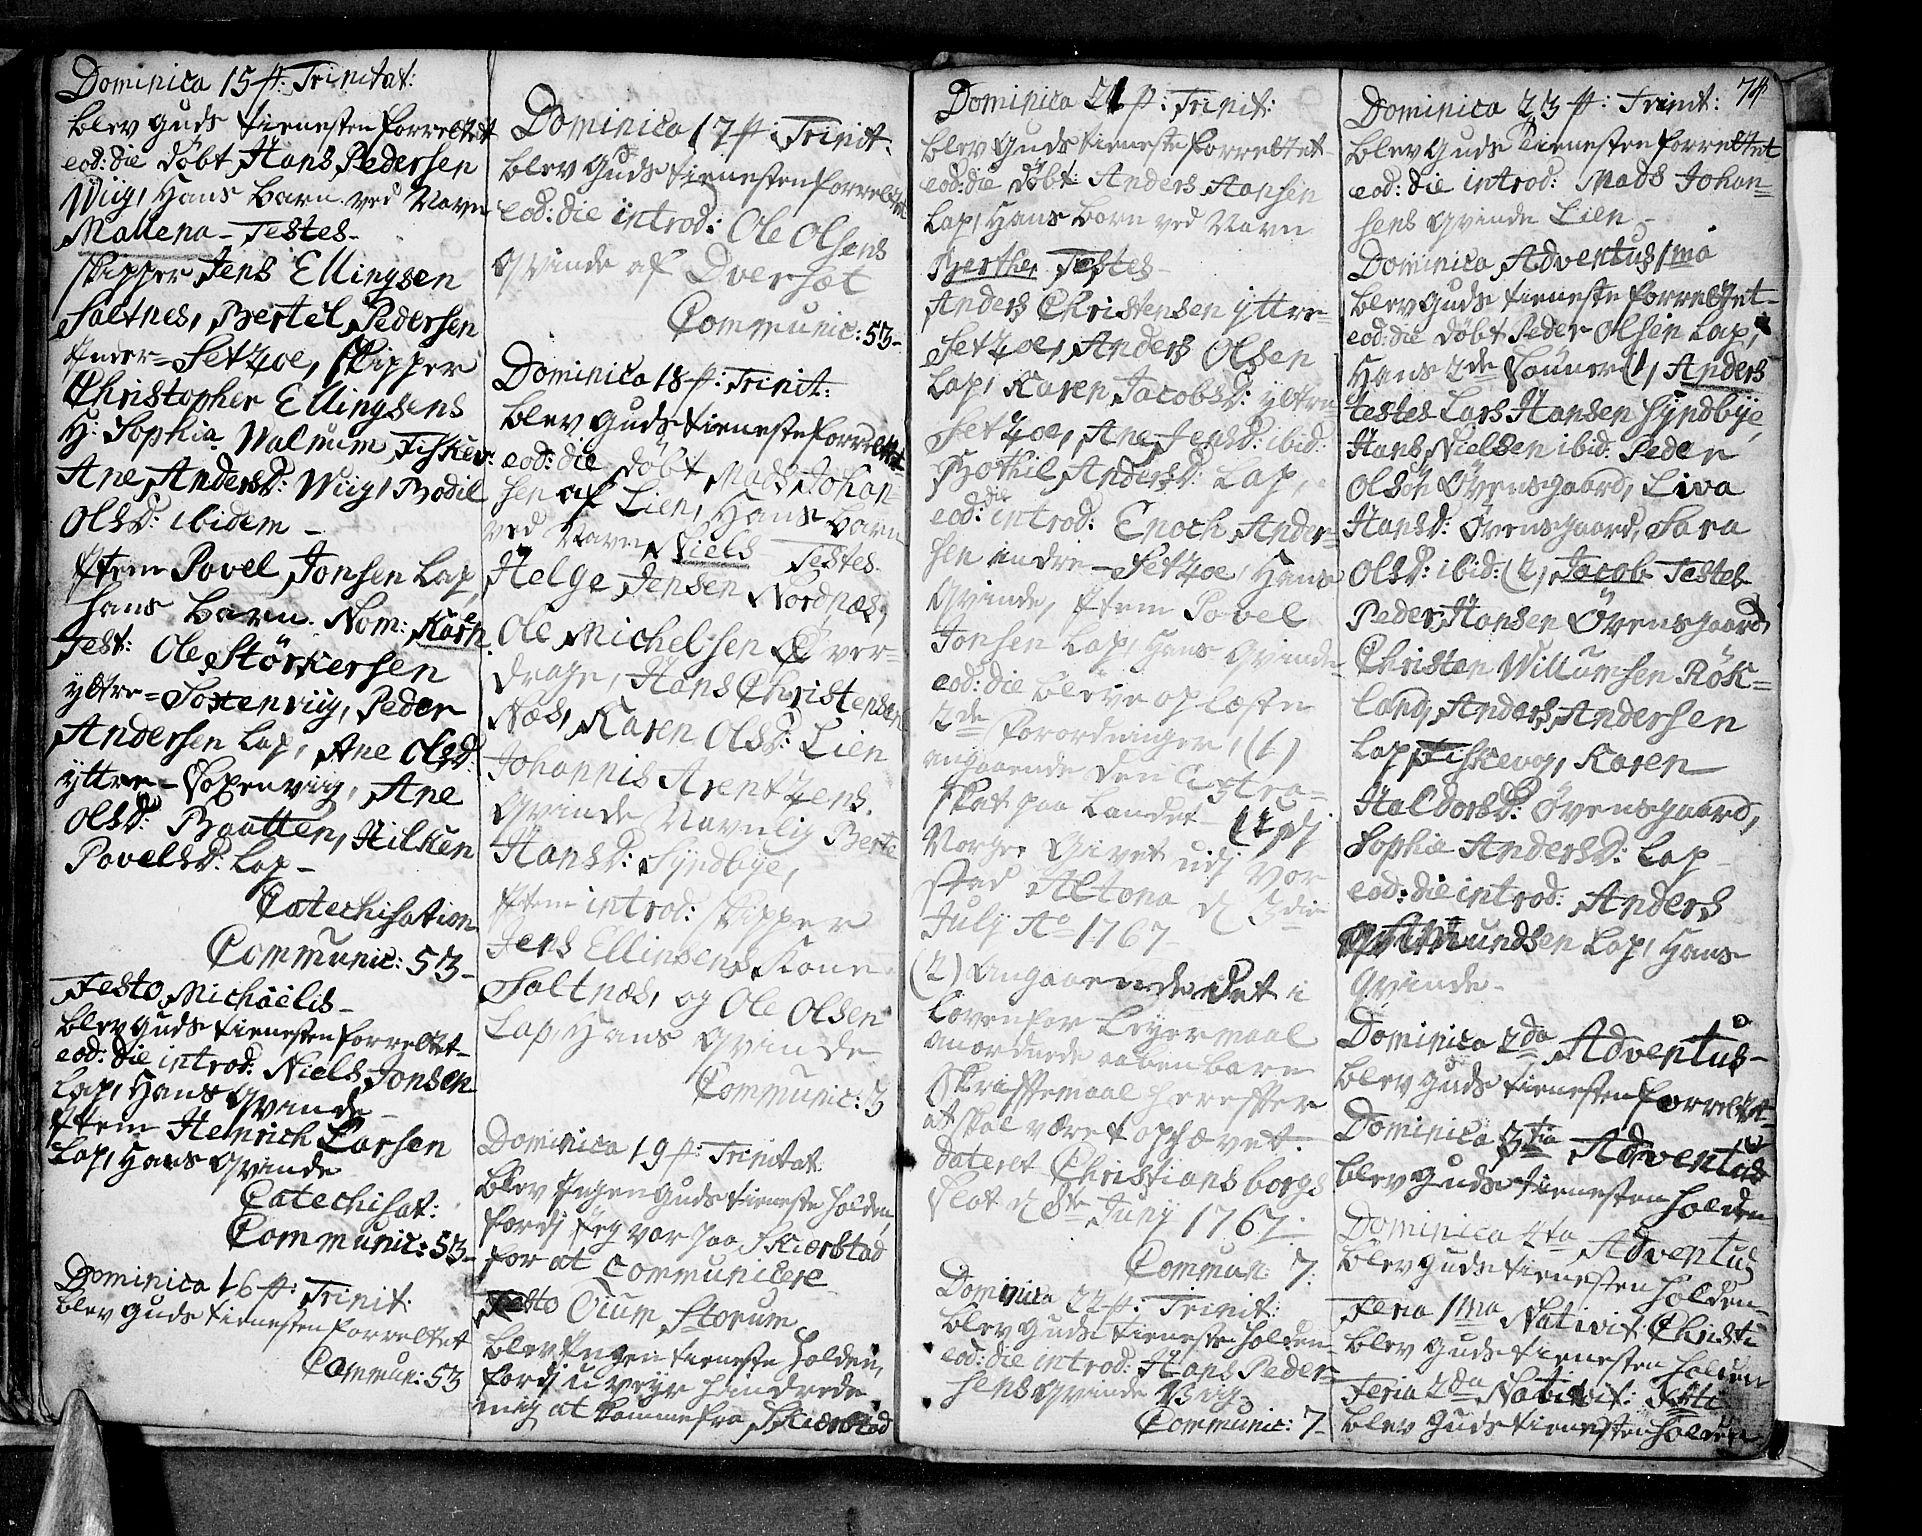 Dominica 15 p: Trinitat:
blev guds tienesten forrettet
eod: die döbt Hans Pedersen
Wiig, Hans barn ved Navn
Mallena - Testes -
skipper Jens Ellingsen
Saltnes, Bertel Pedersen
Inder= Setzoe, Skipper
Christopher Ellingsens
H: Sophia Walnum Fiskev:
Ane Andersd: Wiig, Bodil
Olsd: ibidem -
Item Povel Jonsen Lap,
hans barn. Nom: Karen
Test: Ole Störkersen
yttre= Soxenviig, Peder
Andersen Lap, Ane Olsd:
yttre- Soxenviig, Ane
Olsd: Baatten, Hilken
Povelsd: Lap -
Catechisation
Communic: 53 -
Festo Michäelis -
blev guds tienesten forrettet -
eod: die introd: Niels Jonsen
Lap, Hans Qvinde -
Item Heinrich Larsen
Lap, Hans Qvinde
Catechisat:
Communic: 53 -
Dominica 16 p: Trinit:
blev guds tienesten forrettet
Commun: 53
Dominica 17 p: Trinit:
blev guds tienesten forrettet
eod: die introd: Ole Olsens
Qvinde af Dverset
Communic: 53 -
Dominica 18 p: Trinit:
blev guds tieneste forrettet
eod: die döbt Mads Johan=
sen af Lien, Hans barn
ved Navn Niels Testes
Helge Jensen Nordnæs,
Ole Michelsen Över=
drage, Hans Christensen
Næs, Karen Olsd: Lien
Johannis Arentzens
Qvinde Navnlig Berte
Hansd: Syndbye,
Item introd: skipper
Jens Ellinsens Kone
Saltnæs, og Ole Olsen
Lap, Hans Qvinde
Communic: 3
Dominica 19 p: Trinitat
blev Ingen guds tieneste holden,
fordj Jeg var paa Skierstad
for at Communicere
Festo Oium Storum
blev Ingen tieneste holden,
fordj u veyr hindrede
mig at komme fra Skierstad
Dominica 21 p: Trinit:
blev guds tieneste forrettet
eod: die döbt Anders Hansen
Lap, Hans barn ved Navn
Berthe, Testes -
Anders Christensen yttre=
Setzoe, Anders Olsen
Lap, Karen Jacobsd: yttre
Setzoe, Ane Jensd: ibid:
Bothil Andersd: Lap,
eod: die introd: Enoch Ander=
sen indre - Setzoe, Hans
Qvinde, Item Povel
Jonsen Lap, Hans Qvinde
eod: die bleve oplæste
2de forordninger, (1)
angaaende den Extra=
skat paa Landet
Norge Givet udj vor
stad Altona d 3die
Julij Ao 1767
(2) Angaaende det i
Loven for Leyermaal
anordnede aabenbare
skriftemaal herefter
at skal være ophævet.
dateret Christiansborgs
slot d 8te Junij 1767.
Commun: 7.
Dominica 22 p: Trinit:
blev guds tieneste holden
eod: die introd: Hans Peder=
sens Qvinde Viig
Communic: 7 -
Dominica 23 p: Trinit: 74
blev guds tienesten forrettet
eod: die introd: Mads Johan=
sens Qvinde Lien -
Dominica Adventus 1ma
blev guds tieneste forrettet -
eod: die döbt Peder Olsen Lap,
Hans 2de Sönner (1) Anders
testes Lars Hansen Syndbye,
Hans Nielsen ibid: Peder
Olsön Övensgaard, Liva
Hansd: Övensgaard, Sara
Olsd: ibid: (2) Jacob Testes
Peder Hansen Övensgaard
Christen Willumsen Rök=
land, Anders Andersen
Lap, Fiskevog, Karen
Haldorsd: Övensgaard,
Sophia Andersd: Lap -
eod: die introd: Anders
Amundsen Lap, Hans
Qvinde -
Dominica 2da Adventus -
blev guds tienesten forrettet -
Dominica 3tia Adventus
blev guds tienesten holden
Dominica 4ta Adventus
blev guds tienesten holden -
Feria 1ma Nativit Christi
blev guds tienesten holden
Feria 2da Nativit:
blev guds tienesten holden